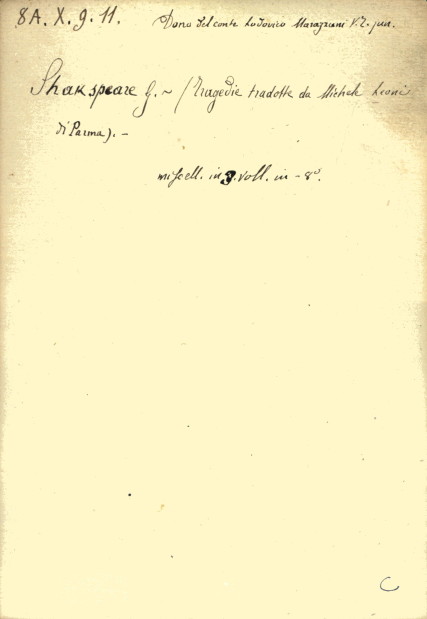 8A. X. 9. 11. Dono del conte Lodovico
Shakspeare G. ~ (Tragedie tradotte da Michele Leoni
di Parma). -
miscell. in voll. in - 8º.
C